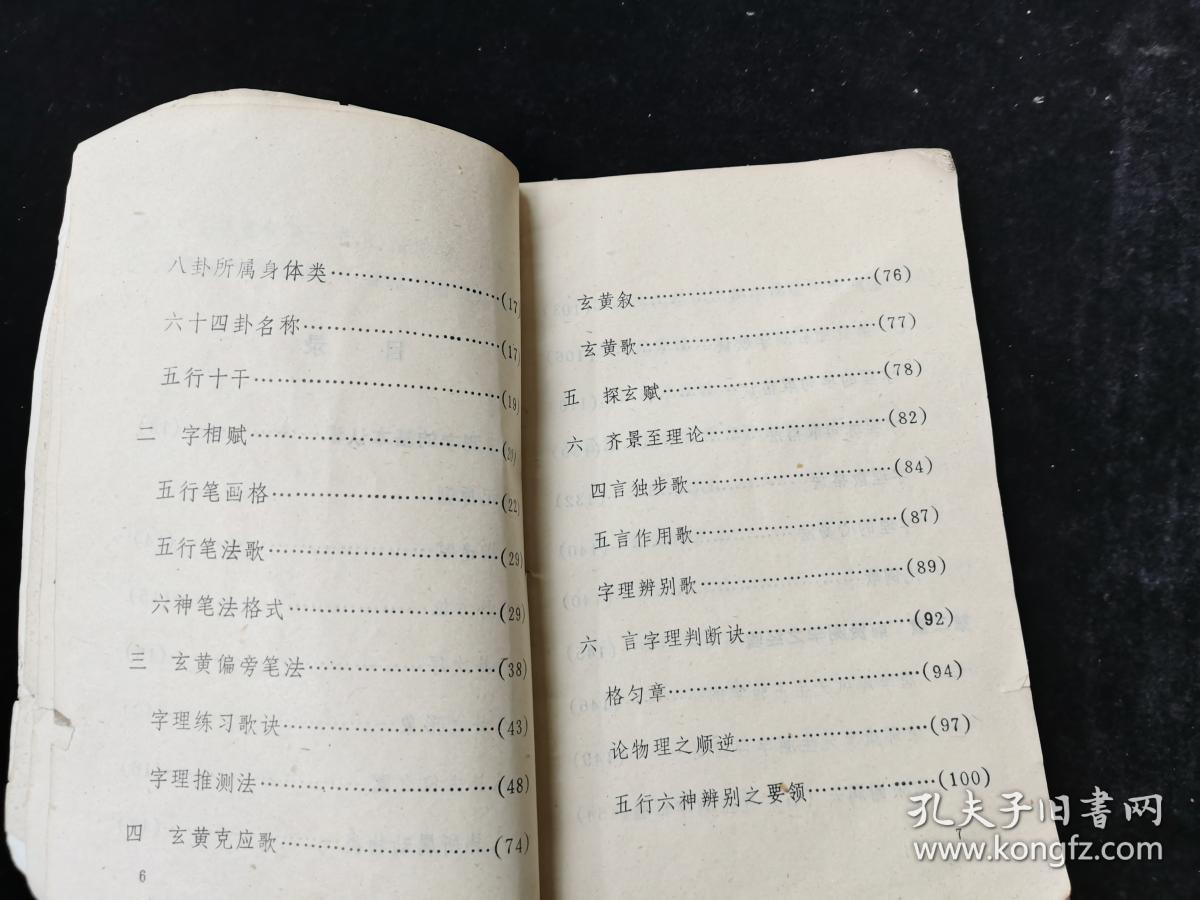 八卦所属身体类……………………(17)
六十四卦名称……………………(17)
五行十干……………………(19)
二 字相赋……………………(20)
五行笔画格……………………(22)
五行笔法歌……………………(29)
六神笔法格式……………………(29)
三 玄黄偏旁笔法……………………(38)
字理练习歌诀……………………(43)
字理推测法……………………(48)
四 玄黄克应歌……………………(74)
6
玄黄叙……………………(76)
玄黄歌……………………(77)
五 探玄赋……………………(78)
六 齐景至理论……………………(82)
四言独步歌……………………(84)
五言作用歌……………………(87)
字理辨别歌……………………(89)
六 言字理判断诀……………………(92)
格匀章……………………(94)
论物理之顺逆……………………(97)
五行六神辨别之要领……………………(100)
7
孔夫子旧书网
www.kongfz.com